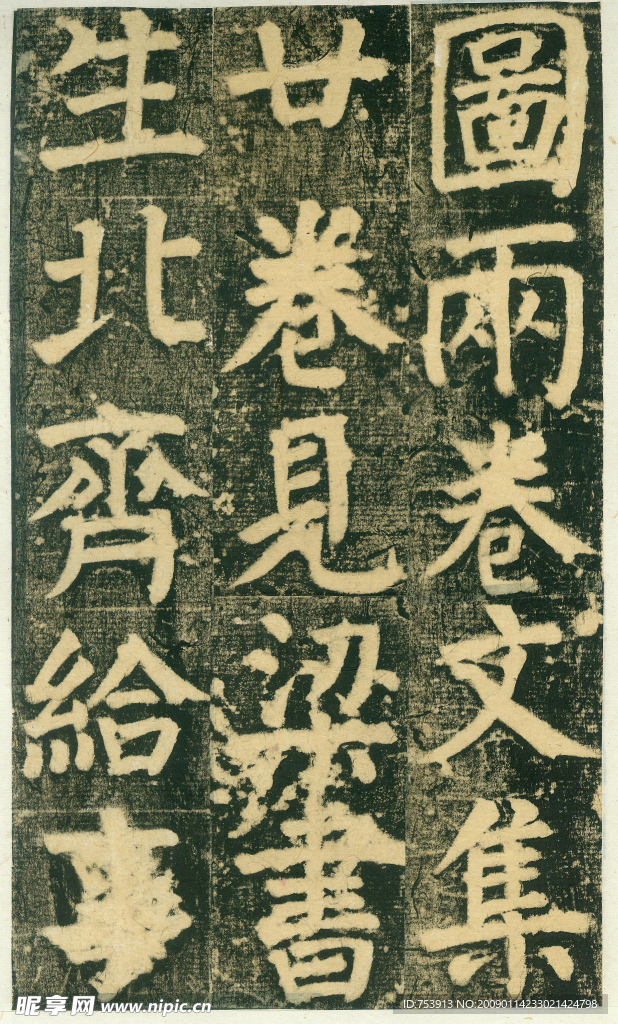 圖兩卷文集
廿卷見梁書
生北齊給事
昵享网 www.nipic.cn
ID:753913 NO:20090114233021424798